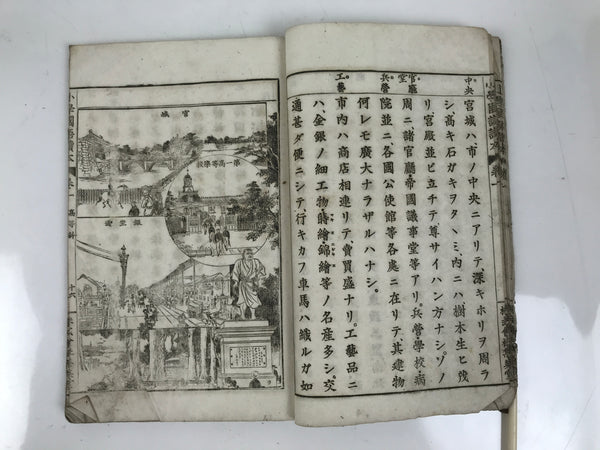 中央
宮城ハ、市ノ中央ニアリテ、深キホリヲ周ラ
シ、高キ石ガキヲタヽミ、内ニハ、樹木生ヒ茂
リ、宮殿並ビ立チテ、尊サイハン方ナシ。ソノ
官廳
堂
周ニ諸官廳帝國議事堂等アリ。兵營學校病
兵營
院並ニ、各國公使館等各處ニ在リテ、其建物
何レモ廣大ナラザルハナシ。
工藝
市内ハ商店相連リテ、賣買盛ナリ。工藝品ニ
ハ、金銀ノ細工物蒔繪錦繪等ノ名産多シ。交
通甚ダ便ニシテ、行キカフ車馬ハ織ルガ如
小學國語讀本
宮城
第一高等學校
銀座通
十六